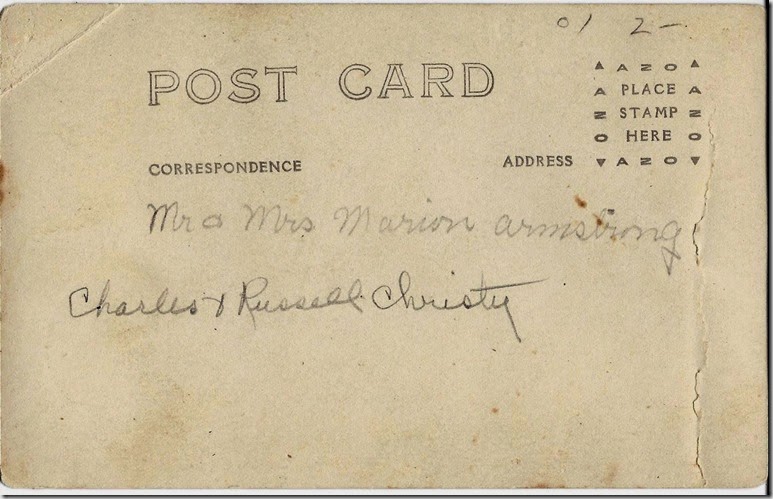 01 2-
POST CARD
▲ A Z O ▲
A PLACE A
N STAMP N
O HERE O
▼ A Z O ▼
CORRESPONDENCE
ADDRESS
Mr & Mrs Marion Armstrong
Charles & Russell Christy